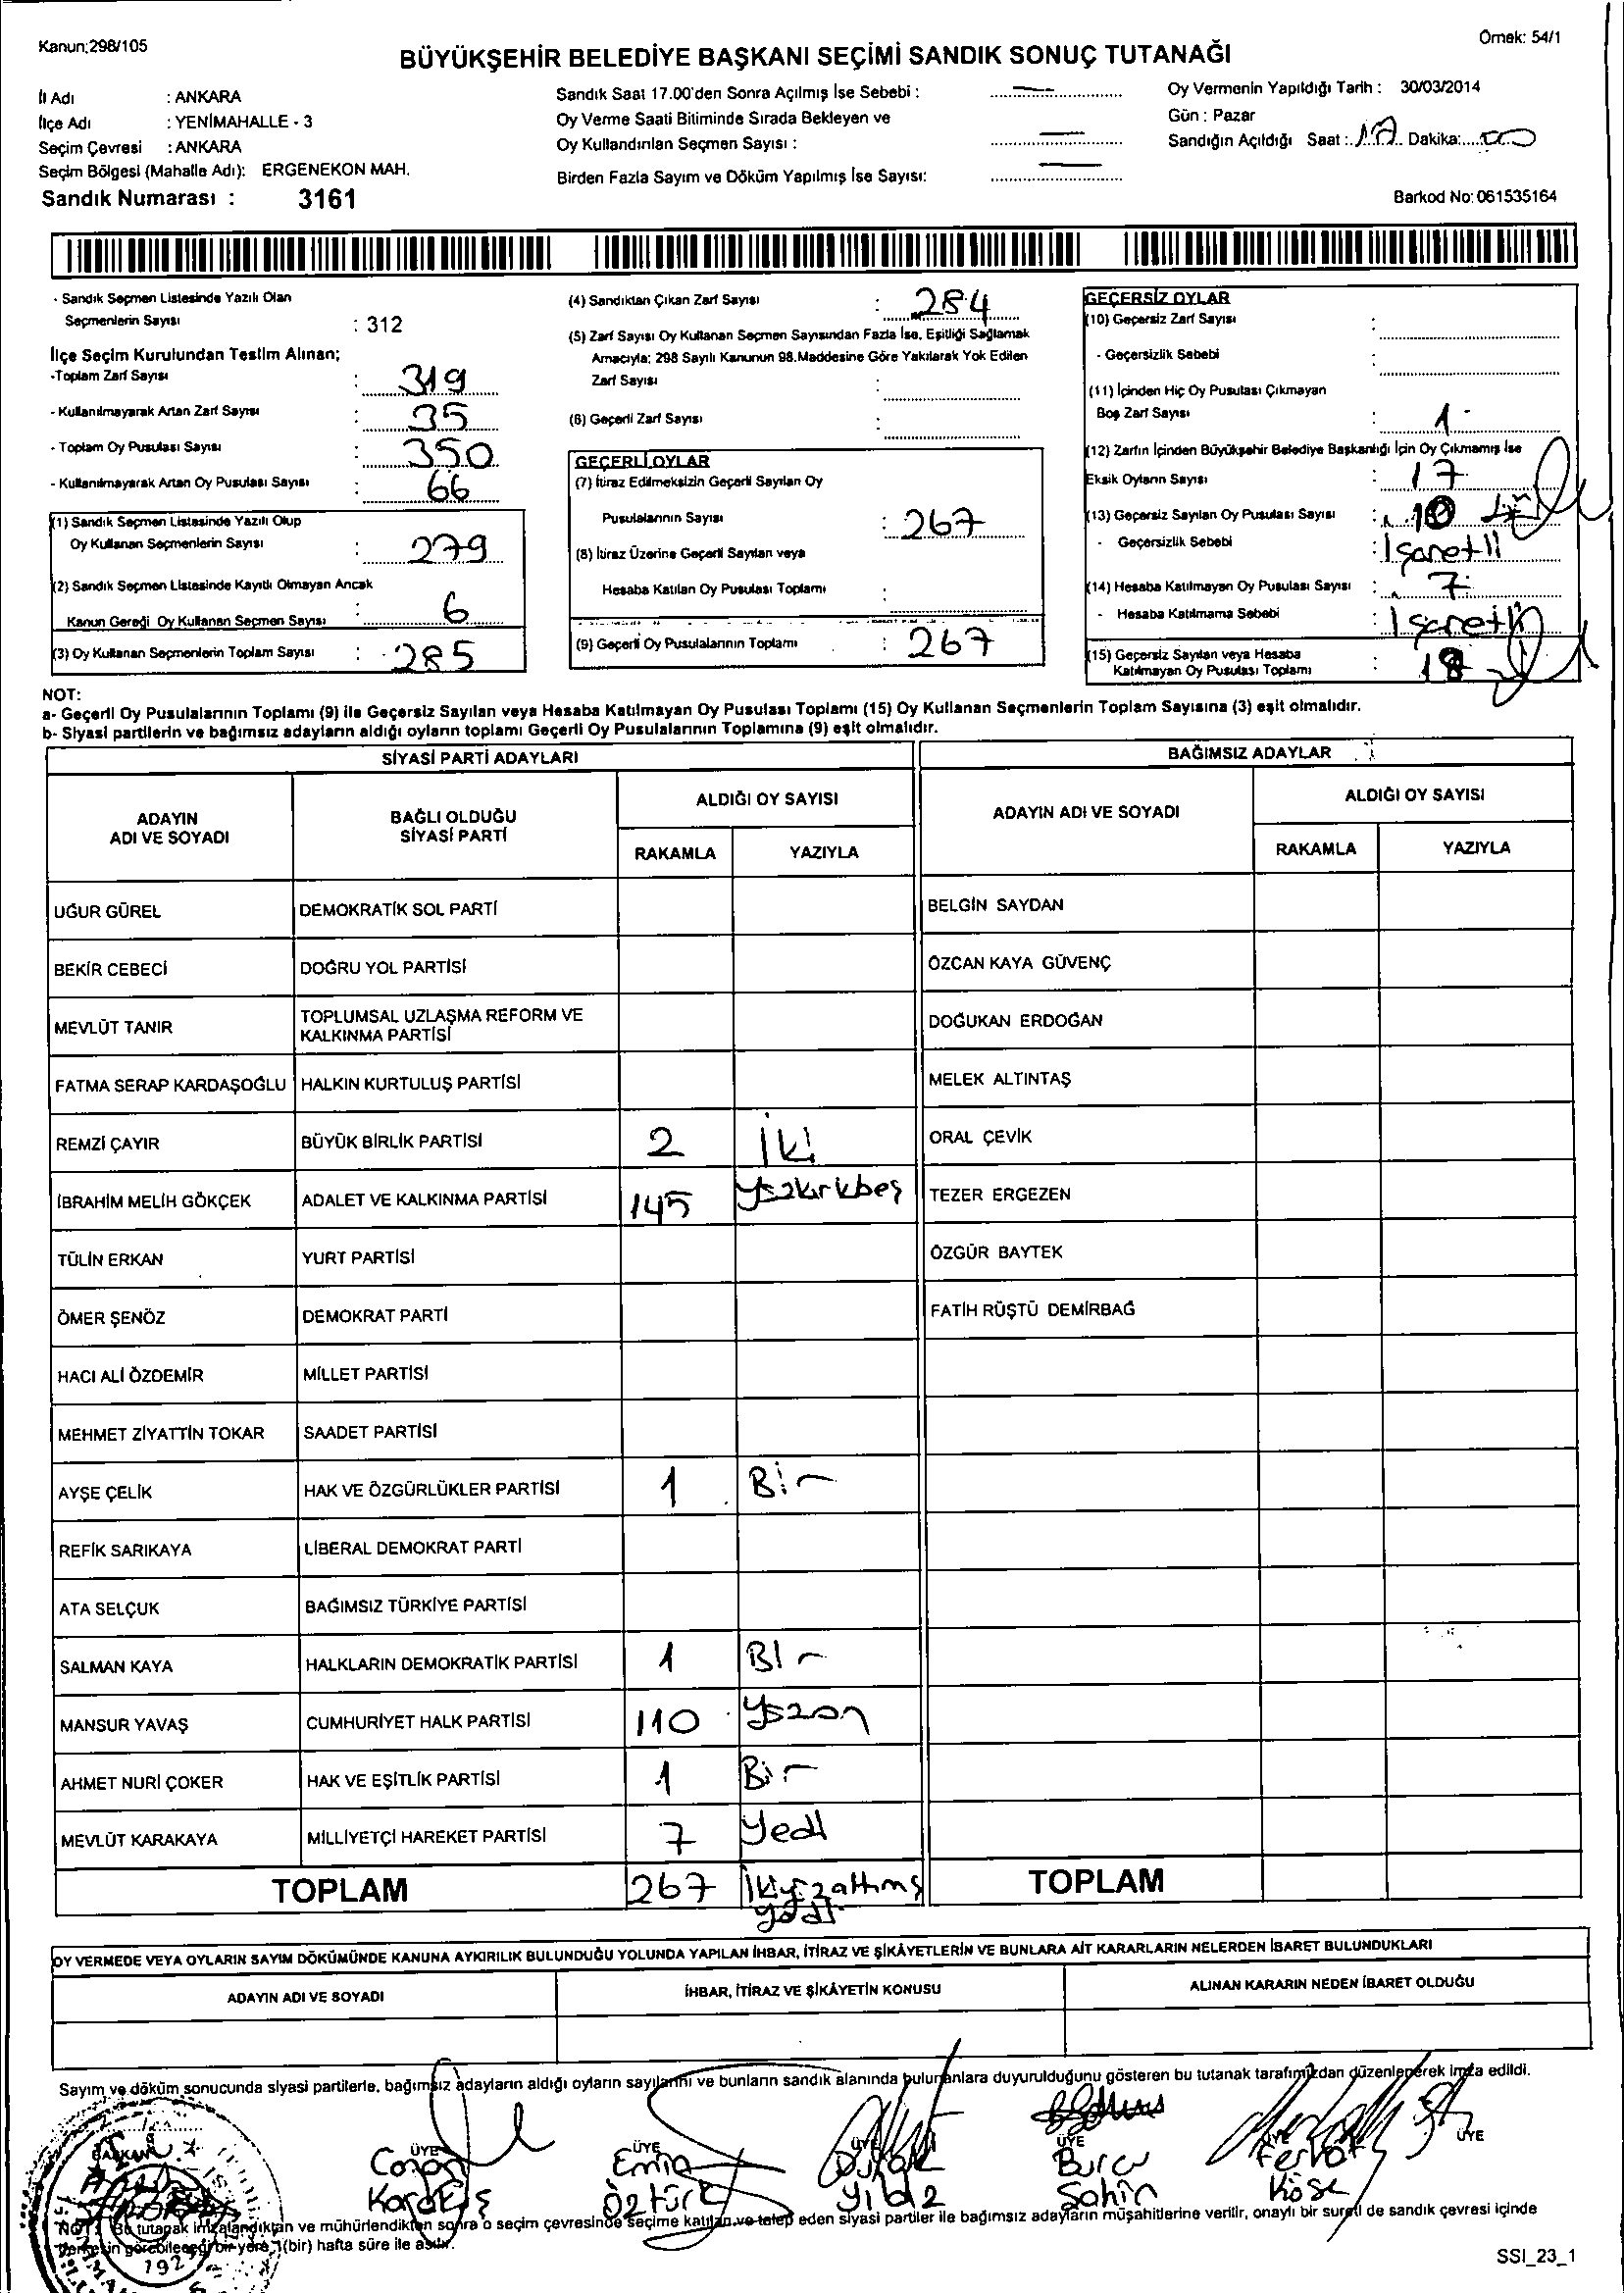 Kanun:298/105
Örnek: 54/1
BÜYÜKŞEHİR BELEDİYE BAŞKANI SEÇİMİ SANDIK SONUÇ TUTANAĞI
İl Adı : ANKARA
İlçe Adı : YENİMAHALLE - 3
Seçim Çevresi : ANKARA
Seçim Bölgesi (Mahalle Adı): ERGENEKON MAH.
Sandık Numarası : 3161
Sandık Saat 17.00'den Sonra Açılmış İse Sebebi :
Oy Verme Saati Bitiminde Sırada Bekleyen ve
Oy Kullandırılan Seçmen Sayısı :
Birden Fazla Sayım ve Döküm Yapılmış İse Sayısı:
Oy Vermenin Yapıldığı Tarih : 30/03/2014
Gün : Pazar
Sandığın Açıldığı Saat : 17 Dakika: 00
Barkod No: 061535164
- Sandık Seçmen Listesinde Yazılı Olan
Seçmenlerin Sayısı : 312
İlçe Seçim Kurulundan Teslim Alınan;
-Toplam Zarf Sayısı : 319
- Kullanılmayarak Artan Zarf Sayısı : 35
- Toplam Oy Pusulası Sayısı : 350
- Kullanılmayarak Artan Oy Pusulası Sayısı : 66
(1) Sandık Seçmen Listesinde Yazılı Olup
Oy Kullanan Seçmenlerin Sayısı : 279
(2) Sandık Seçmen Listesinde Kayıtlı Olmayan Ancak
Kanun Gereği Oy Kullanan Seçmen Sayısı : 6
(3) Oy Kullanan Seçmenlerin Toplam Sayısı : 285
(4) Sandıktan Çıkan Zarf Sayısı : 284
(5) Zarf Sayısı Oy Kullanan Seçmen Sayısından Fazla İse, Eşitliği Sağlamak
Amacıyla; 298 Sayılı Kanunun 98.Maddesine Göre Yakılarak Yok Edilen
Zarf Sayısı :
(6) Geçerli Zarf Sayısı :
GEÇERLİ OYLAR
(7) İtiraz Edilmeksizin Geçerli Sayılan Oy
Pusulalarının Sayısı : 267
(8) İtiraz Üzerine Geçerli Sayılan veya
Hesaba Katılan Oy Pusulası Toplamı :
(9) Geçerli Oy Pusulalarının Toplamı : 267
GEÇERSİZ OYLAR
(10) Geçersiz Zarf Sayısı :
- Geçersizlik Sebebi :
(11) İçinden Hiç Oy Pusulası Çıkmayan
Boş Zarf Sayısı : 1
(12) Zarfın İçinden Büyükşehir Belediye Başkanlığı İçin Oy Çıkmamış İse
Eksik Oyların Sayısı : 17
(13) Geçersiz Sayılan Oy Pusulası Sayısı : 10
- Geçersizlik Sebebi : İşaretli
(14) Hesaba Katılmayan Oy Pusulası Sayısı : 7
- Hesaba Katılmama Sebebi : İşaretli
(15) Geçersiz Sayılan veya Hesaba
Katılmayan Oy Pusulası Toplamı : 18
NOT:
a- Geçerli Oy Pusulalarının Toplamı (9) ile Geçersiz Sayılan veya Hesaba Katılmayan Oy Pusulası Toplamı (15) Oy Kullanan Seçmenlerin Toplam Sayısına (3) eşit olmalıdır.
b- Siyasi partilerin ve bağımsız adayların aldığı oyların toplamı Geçerli Oy Pusulalarının Toplamına (9) eşit olmalıdır.
SİYASİ PARTİ ADAYLARI
BAĞIMSIZ ADAYLAR
ADAYIN
ADI VE SOYADI
BAĞLI OLDUĞU
SİYASİ PARTİ
ALDIĞI OY SAYISI
RAKAMLA YAZIYLA
ADAYIN ADI VE SOYADI
ALDIĞI OY SAYISI
RAKAMLA YAZIYLA
UĞUR GÜREL DEMOKRATİK SOL PARTİ BELGİN SAYDAN
BEKİR CEBECİ DOĞRU YOL PARTİSİ ÖZCAN KAYA GÜVENÇ
MEVLÜT TANIR TOPLUMSAL UZLAŞMA REFORM VE
KALKINMA PARTİSİ DOĞUKAN ERDOĞAN
FATMA SERAP KARDAŞOĞLU HALKIN KURTULUŞ PARTİSİ MELEK ALTINTAŞ
REMZİ ÇAYIR BÜYÜK BİRLİK PARTİSİ 2 İki ORAL ÇEVİK
İBRAHİM MELİH GÖKÇEK ADALET VE KALKINMA PARTİSİ 145 yszkırkbeş TEZER ERGEZEN
TÜLİN ERKAN YURT PARTİSİ ÖZGÜR BAYTEK
ÖMER ŞENÖZ DEMOKRAT PARTİ FATİH RÜŞTÜ DEMİRBAĞ
HACI ALİ ÖZDEMİR MİLLET PARTİSİ
MEHMET ZİYATTİN TOKAR SAADET PARTİSİ
AYŞE ÇELİK HAK VE ÖZGÜRLÜKLER PARTİSİ 1 Bir
REFİK SARIKAYA LİBERAL DEMOKRAT PARTİ
ATA SELÇUK BAĞIMSIZ TÜRKİYE PARTİSİ
SALMAN KAYA HALKLARIN DEMOKRATİK PARTİSİ 1 Bir
MANSUR YAVAŞ CUMHURİYET HALK PARTİSİ 110 yszon
AHMET NURİ ÇOKER HAK VE EŞİTLİK PARTİSİ 1 Bir
MEVLÜT KARAKAYA MİLLİYETÇİ HAREKET PARTİSİ 7 Yedi
TOPLAM 267 İkiyszaltmış
yedi
TOPLAM
OY VERMEDE VEYA OYLARIN SAYIM DÖKÜMÜNDE KANUNA AYKIRILIK BULUNDUĞU YOLUNDA YAPILAN İHBAR, İTİRAZ VE ŞİKÂYETLERİN VE BUNLARA AİT KARARLARIN NELERDEN İBARET BULUNDUKLARI
ADAYIN ADI VE SOYADI
İHBAR, İTİRAZ VE ŞİKÂYETİN KONUSU
ALINAN KARARIN NEDEN İBARET OLDUĞU
Sayım ve döküm sonucunda siyasi partilerle, bağımsız adayların aldığı oyların sayılarını ve bunların sandık alanında bulunanlara duyurulduğunu gösteren bu tutanak tarafımızdan düzenlenerek imza edildi.
BAŞKAN ÜYE ÜYE ÜYE ÜYE ÜYE ÜYE
Emine Burcu Ferhat
Öztürk Yıldız Şahin Köse
NOT: Bu tutanak imzalandıktan ve mühürlendikten sonra o seçim çevresinde seçime katılan ve talep eden siyasi partiler ile bağımsız adayların müşahitlerine verilir, onaylı bir sureti de sandık çevresi içinde
herkesin görebileceği bir yere 1(bir) hafta süre ile asılır.
SSI_23_1